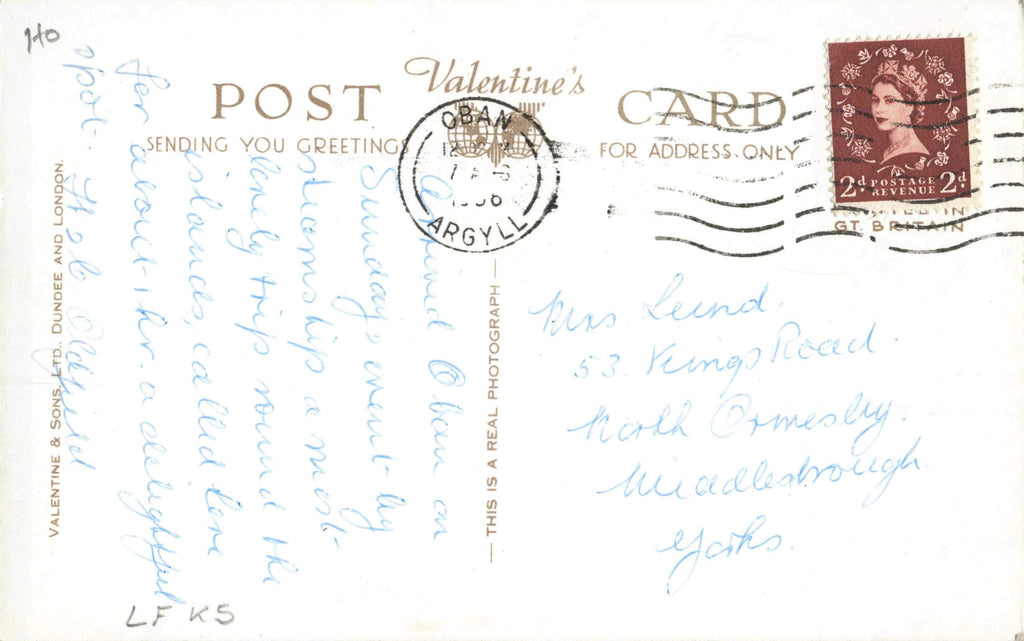 Ho
POST Valentine's CARD
SENDING YOU GREETINGS
FOR ADDRESS ONLY
OBAN
ARGYLL
2d POSTAGE REVENUE 2d
GT. BRITAIN
VALENTINE & SONS, LTD., DUNDEE AND LONDON.
THIS IS A REAL PHOTOGRAPH
Arrived Oban on
Sunday & went by
steamship a most
lovely trip round the
islands, called here
for about 1 hr. a delightful
spot.
Oldfield
Mrs Lund.
53. Kings Road.
North Ormesby.
Middlesbrough
Yorks.
LF KS